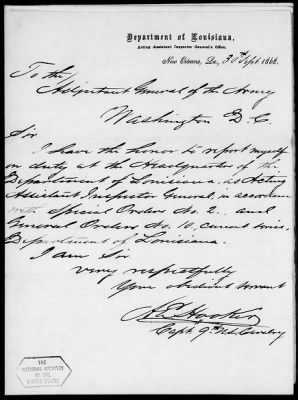 Department of Louisiana,
Acting Assistant Inspector General's Office,
New Orleans, La., 30th Sept. 1868.
To the
Adjutant General of the Army
Washington D.C.
Sir
I have the honor to report myself
on duty at the Headquarters of the
Department of Louisiana, as Acting
Assistant Inspector General, in accordance
with Special Orders No. 2., and
General Orders No. 10, current series,
Department of Louisiana.
I am Sir
very respectfully
Your obedient servant
Hooker
Capt. 9th U.S. Cavalry
THE
NATIONAL ARCHIVES
OF THE
UNITED STATES